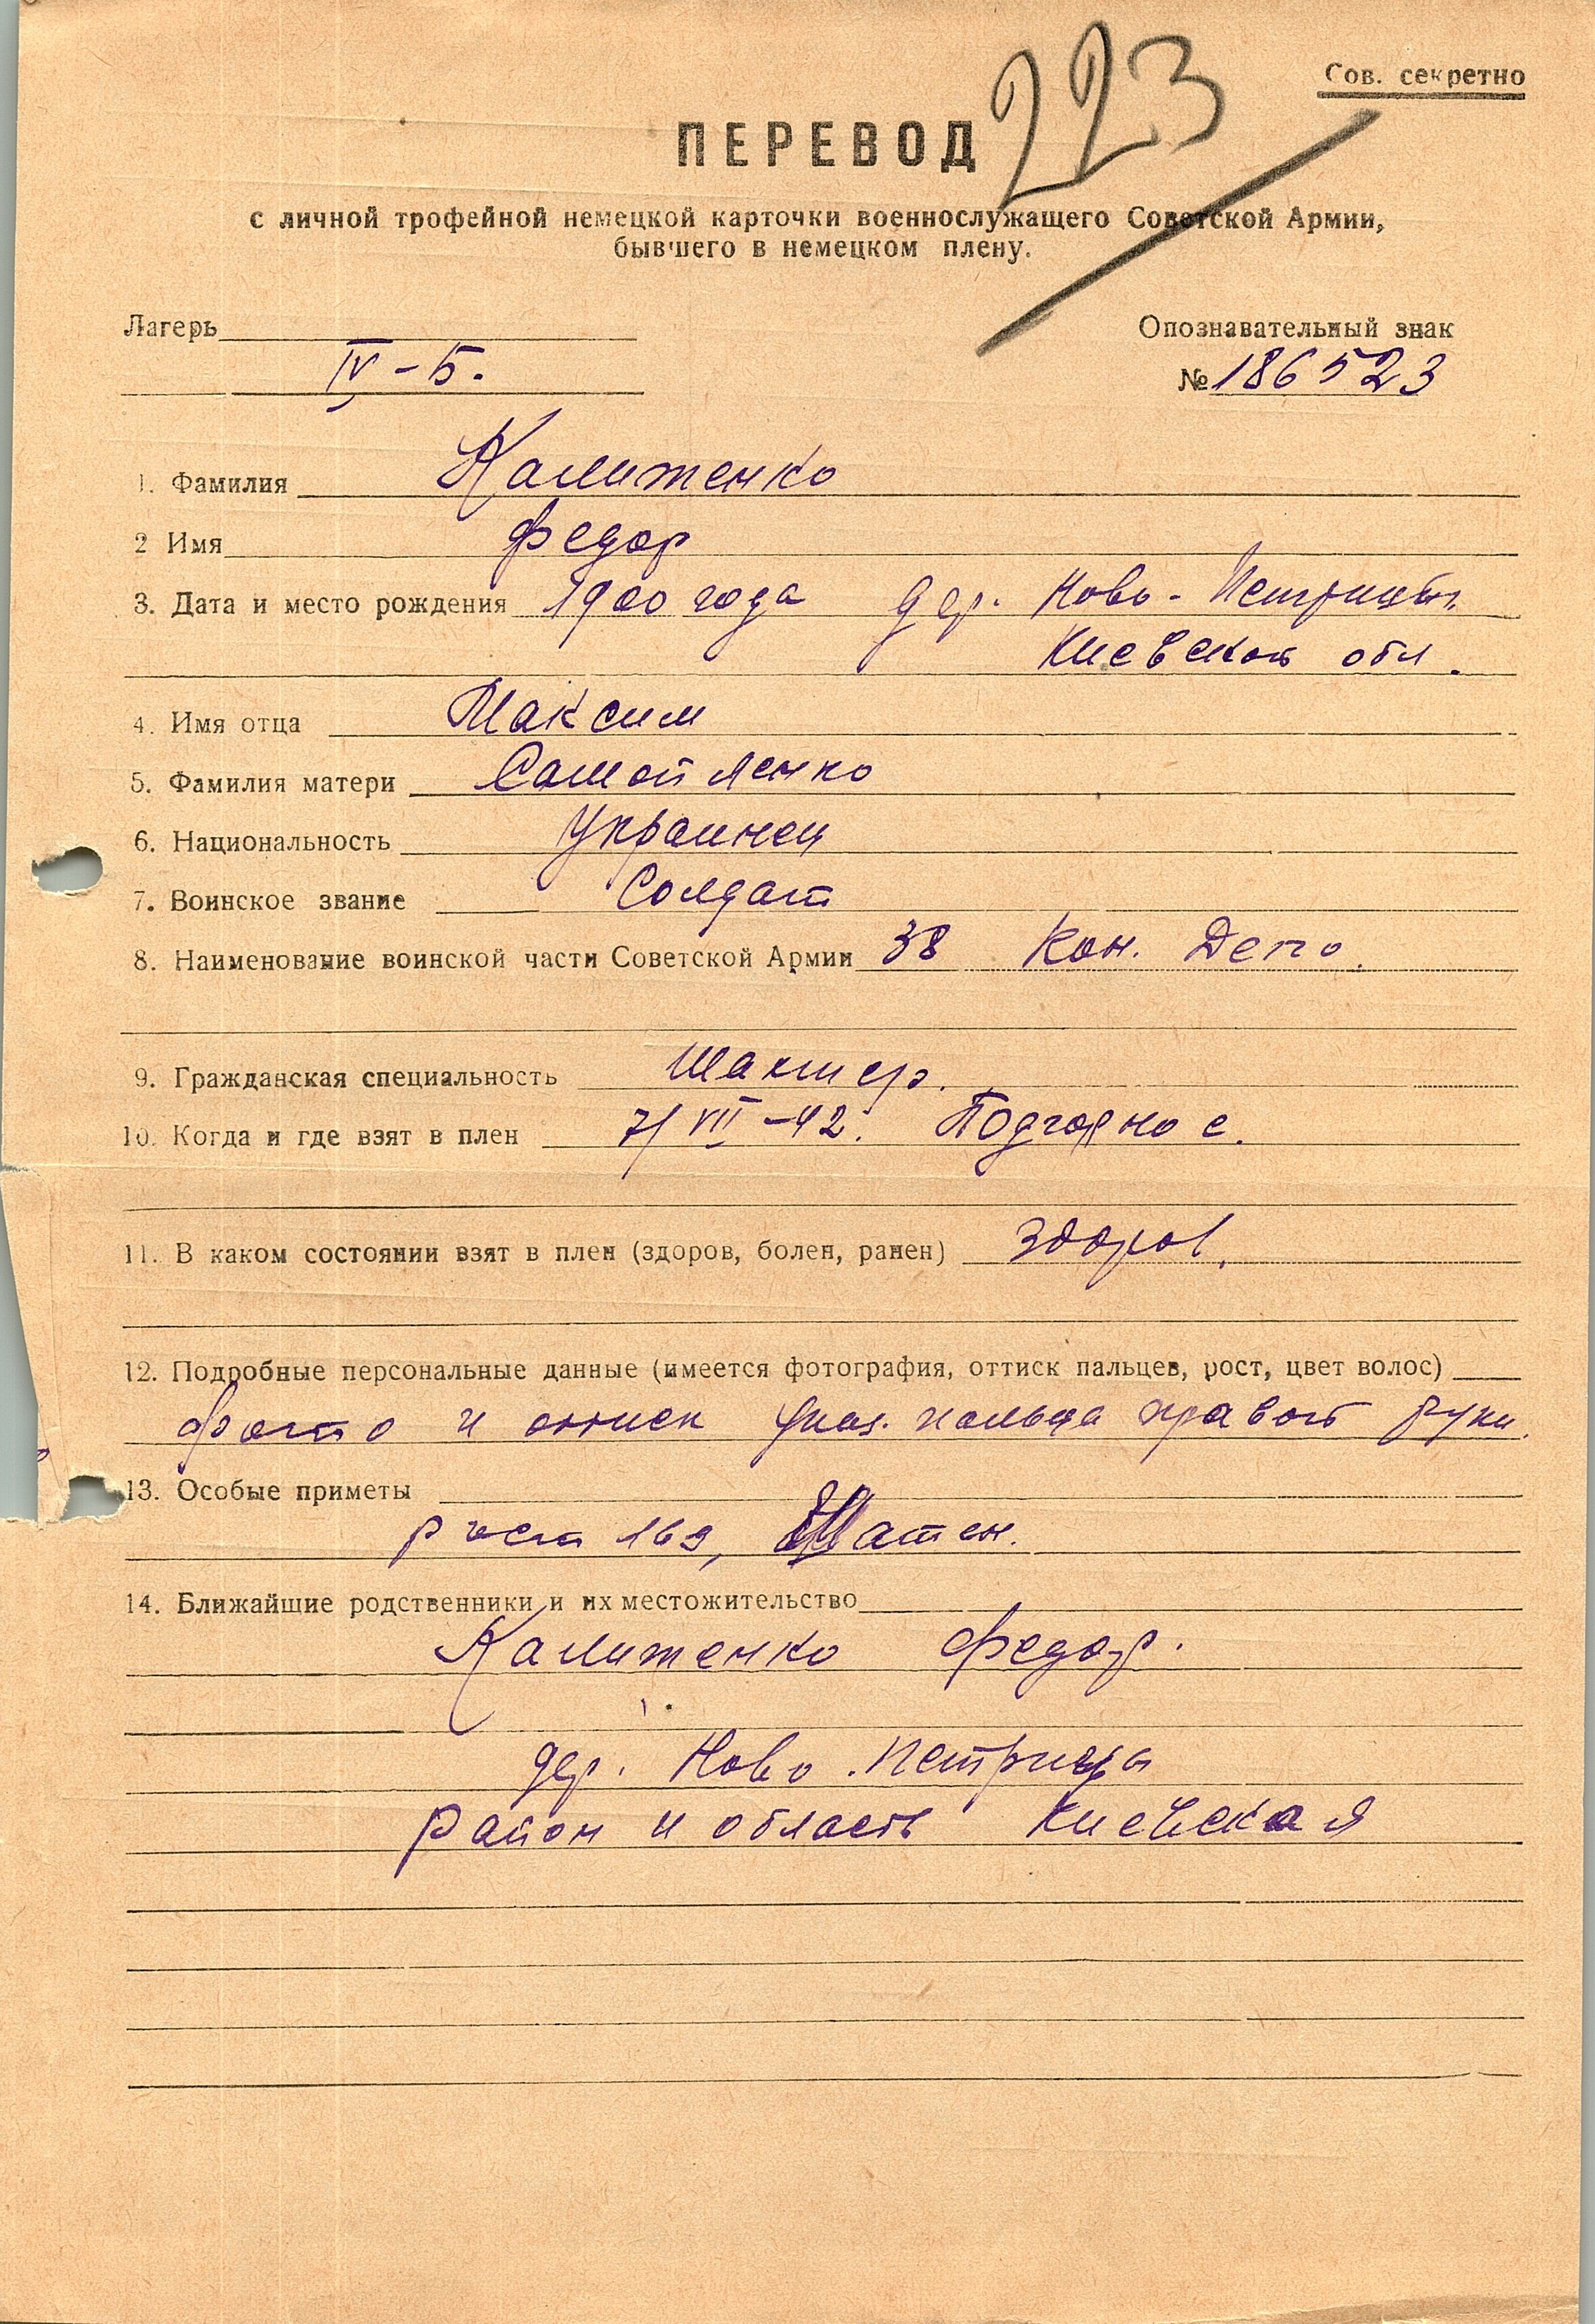 223
Сов. секретно
ПЕРЕВОД
с личной трофейной немецкой карточки военнослужащего Советской Армии,
бывшего в немецком плену.
Лагерь
Опознавательный знак
IV-Б.
№ 186523
1. Фамилия Калитенко
2 Имя Федор
3. Дата и место рождения 1900 года дер. Ново-Петрицы
Киевской обл.
4. Имя отца Максим
5. Фамилия матери Самойленко
6. Национальность Украинец
7. Воинское звание Солдат
8. Наименование воинской части Советской Армии 38 Кон. Депо.
9. Гражданская специальность Шахтер.
10. Когда и где взят в плен 7/VII-42. Подгорное.
11. В каком состоянии взят в плен (здоров, болен, ранен) здоров.
12. Подробные персональные данные (имеется фотография, оттиск пальцев, рост, цвет волос)
фото и оттиск указ. пальца правой руки.
13. Особые приметы
рост 169, Шатен.
14. Ближайшие родственники и их местожительство
Калитенко Федор.
дер. Ново. Петрицы
район и область Киевская